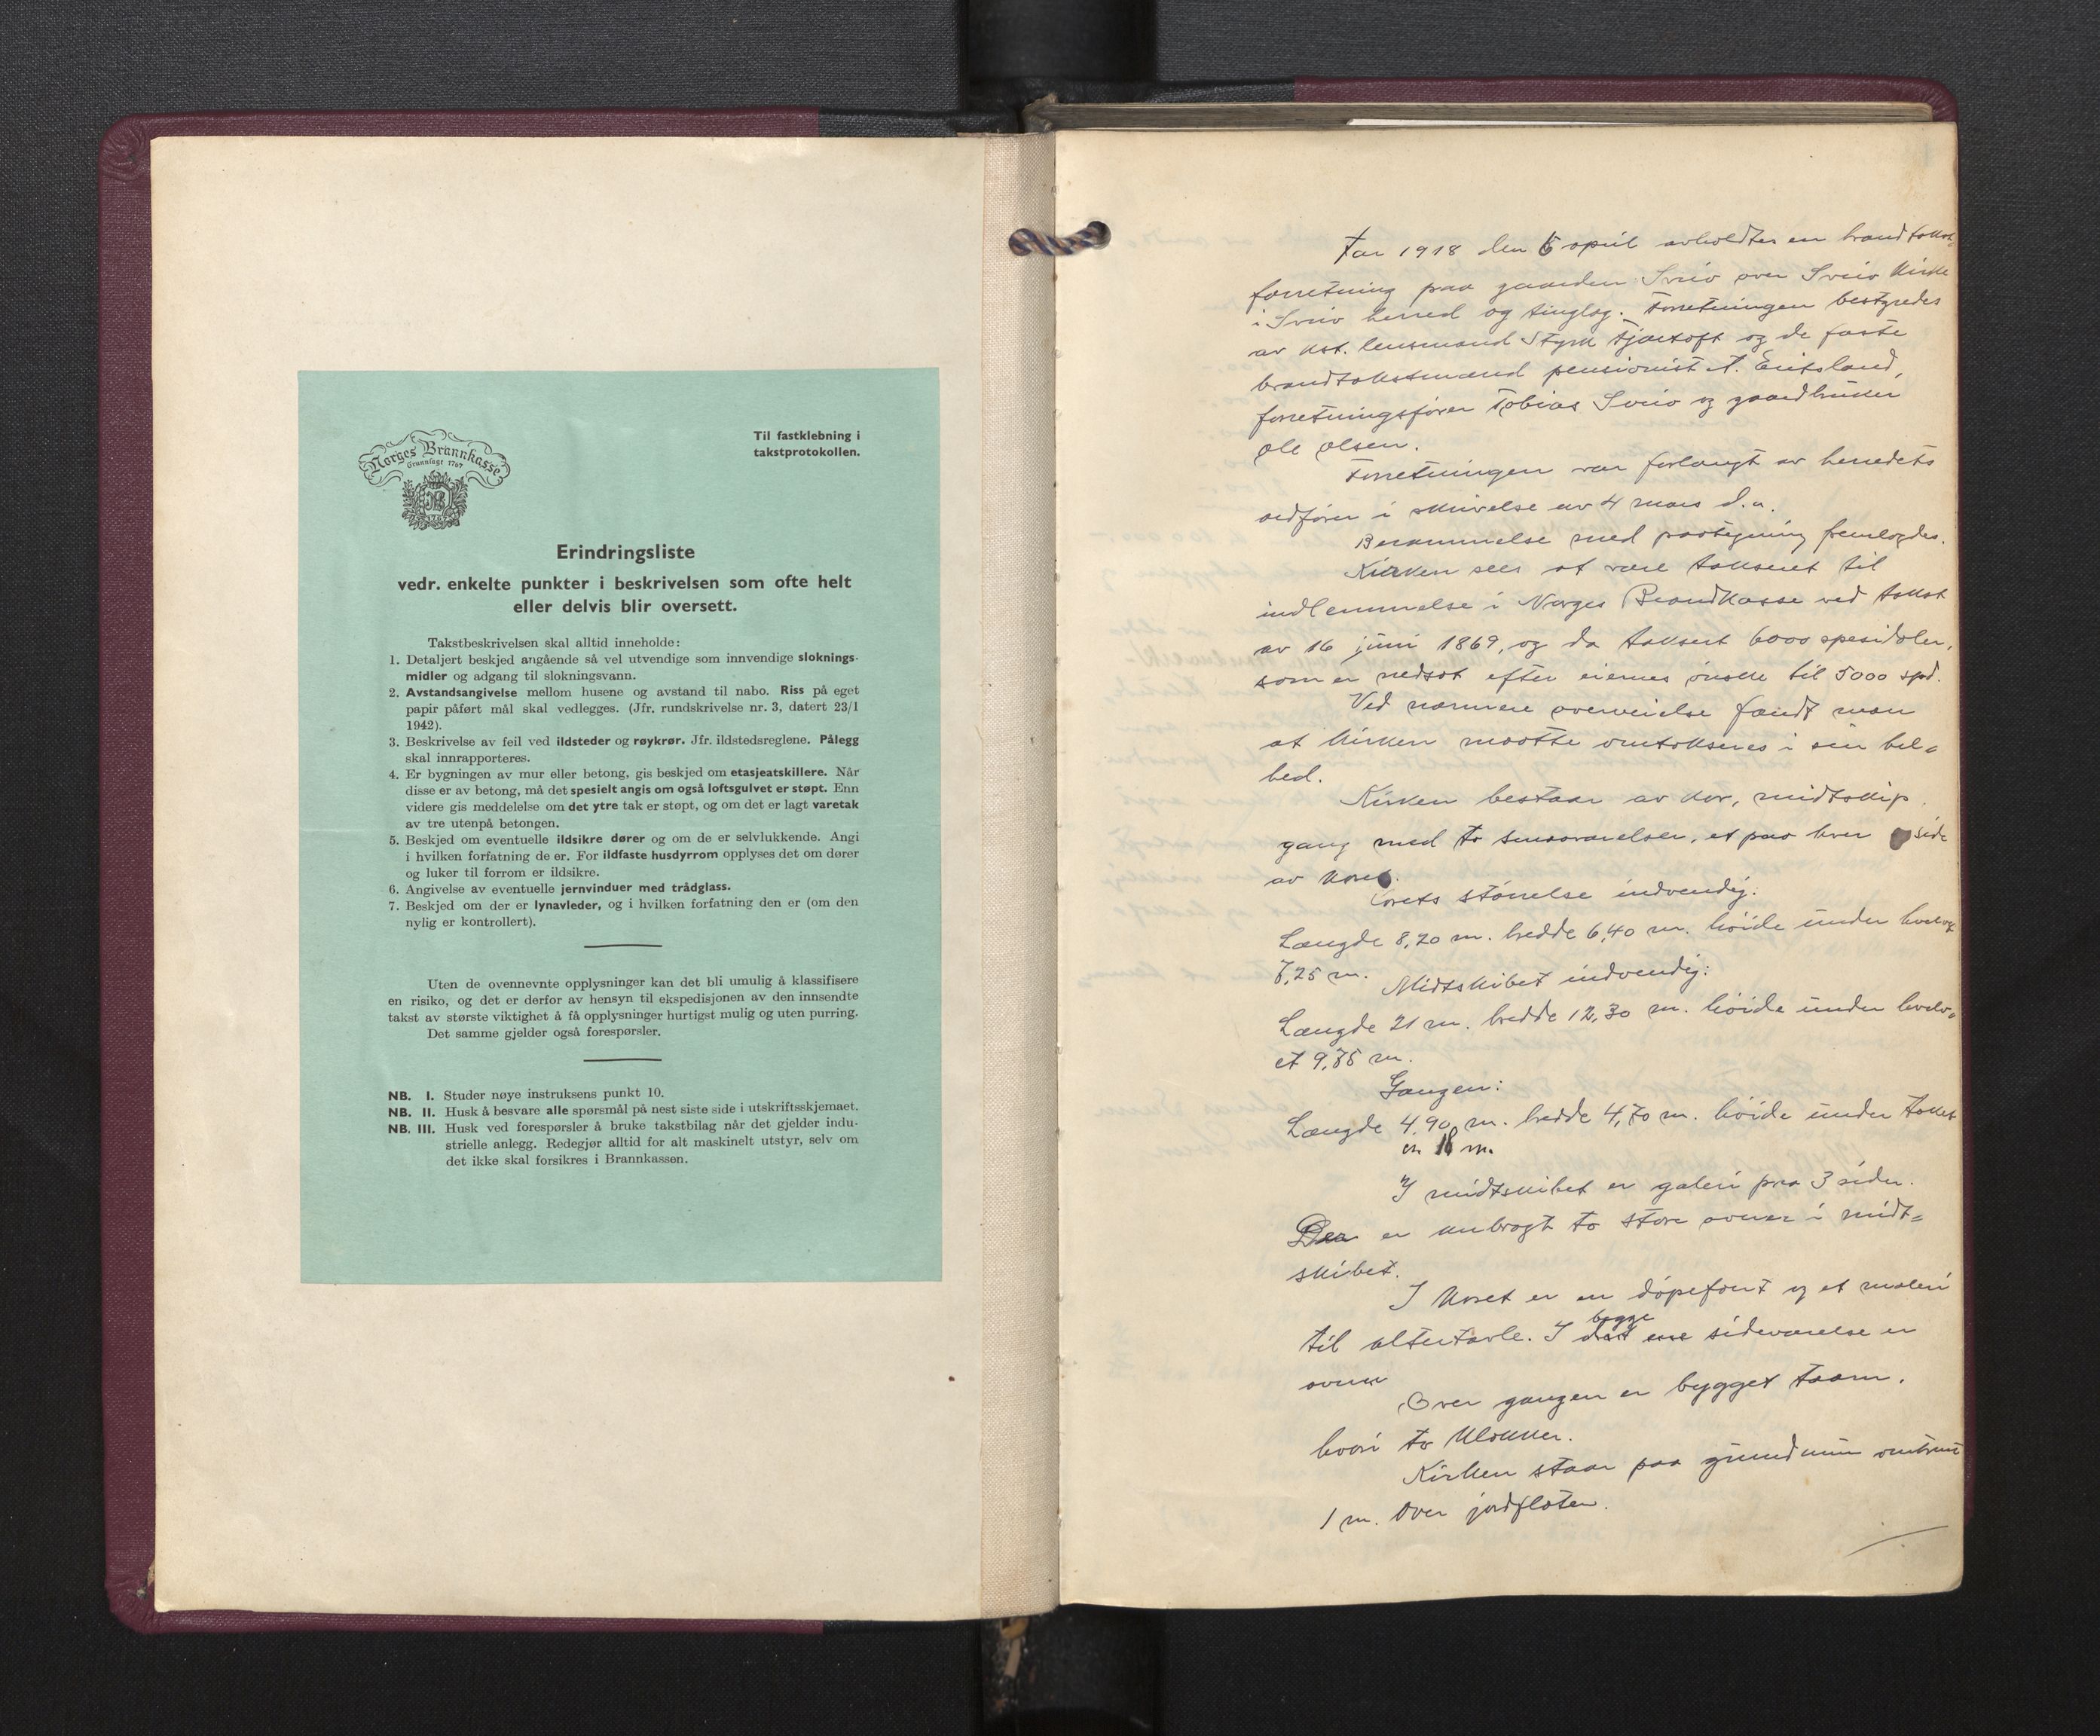 Norges Brannkasse
Grunnlagt 1767
Til fastklebning i
takstprotokollen.
Erindringsliste
vedr. enkelte punkter i beskrivelsen som ofte helt
eller delvis blir oversett.
Takstbeskrivelsen skal alltid inneholde:
1. Detaljert beskjed angående så vel utvendige som innvendige sloknings-
midler og adgang til slokningsvann.
2. Avstandsangivelse mellom husene og avstand til nabo. Riss på eget
papir påført mål skal vedlegges. (Jfr. rundskrivelse nr. 3, datert 23/1
1942).
3. Beskrivelse av feil ved ildsteder og røykrør. Jfr. ildstedsreglene. Pålegg
skal innrapporteres.
4. Er bygningen av mur eller betong, gis beskjed om etasjeatskillere. Når
disse er av betong, må det spesielt angis om også loftsgulvet er støpt. Enn
videre gis meddelelse om det ytre tak er støpt, og om det er lagt varetak
av tre utenpå betongen.
5. Beskjed om eventuelle ildsikre dører og om de er selvlukkende. Angi
i hvilken forfatning de er. For ildfaste husdyrrom opplyses det om dører
og luker til forrom er ildsikre.
6. Angivelse av eventuelle jernvinduer med trådglass.
7. Beskjed om der er lynavleder, og i hvilken forfatning den er (om den
nylig er kontrollert).
Uten de ovennevnte opplysninger kan det bli umulig å klassifisere
en risiko, og det er derfor av hensyn til ekspedisjonen av den innsendte
takst av største viktighet å få opplysninger hurtigst mulig og uten purring.
Det samme gjelder også forespørsler.
NB. I. Studer nøye instruksens punkt 10.
NB. II. Husk å besvare alle spørsmål på nest siste side i utskriftsskjemaet.
NB. III. Husk ved forespørsler å bruke takstbilag når det gjelder indu-
strielle anlegg. Redegjør alltid for alt maskinelt utstyr, selv om
det ikke skal forsikres i Brannkassen.
Aar 1918 den 6 april avholdtes en brandtakst-
forretning paa gaarden Sveio over Sveio kirke
i Sveio herred og tinglag. Forretningen bestyredes
av kst. lensmand Styrk Fjærtoft og de faste
brandtakstmænd pensionist A. Eritsland,
forretningsfører Tobias Sveio og gaardbruker
Ole Olsen.
Forretningen var forlangt av herredets
ordfører i skrivelse av 4 mars d.a.
Berammelse med paategning fremlagdes.
Kirken sees at være taksert til
indlemmelse i Norges Brandkasse ved takst
av 16 juni 1869, og da taksert 6000 spesidaler,
som er nedsat efter eiernes ønske til 5000 spd.
Ved nærmere overveielse fandt man
at kirken maatte omtakseres i sin hel-
hed.
Kirken bestaar av kor, midtskip
gang med to smaaværelser, et paa hver side
av koret.
Corets størrelse indvendig:
Længde 8,20 m. bredde 6,40 m. høide under hvelvet
7,25 m.
Midtskibet indvendig:
Længde 21 m. bredde 12,30 m. høide under hvelv-
et 9,75 m.
Gangen:
Længde 4,90 m. bredde 4,70 m. høide under taket
er 18 m.
I midtskibet er galeri paa 3 sider.
Der er anbragt to store ovner i midt-
skibet.
I koret er en døpefont og et maleri
til altertavle. I begge sideværelse er
ovner
Over gangen er bygget taarn,
hvori to klokker.
Kirken staar paa grundmur omtrent
1 m. over jordflaten.